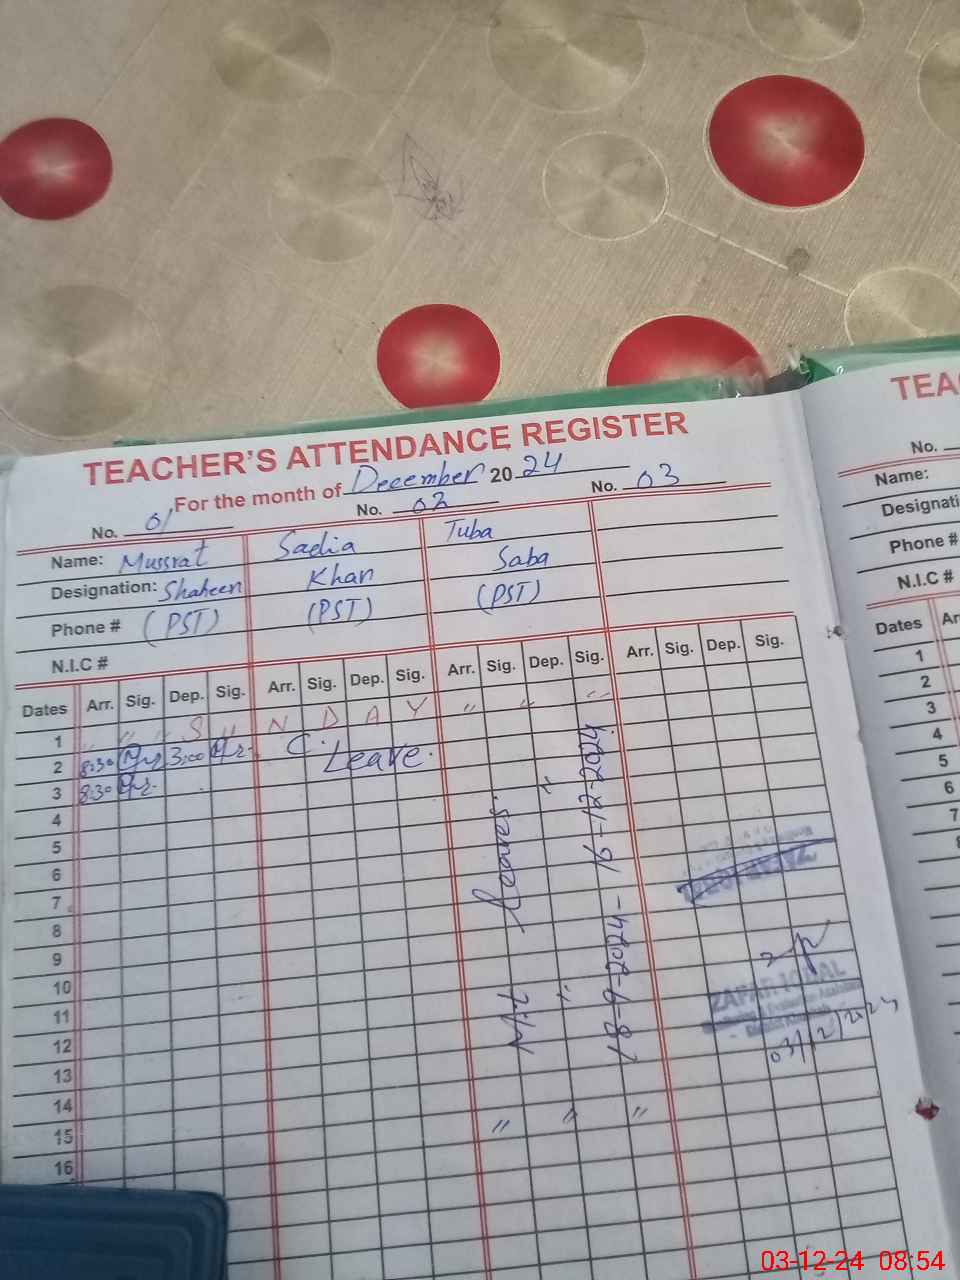 TEACHER'S ATTENDANCE REGISTER
For the month of December 2024
No. 01 No. 02 No. 03
Name: Mussrat Sadia Tuba
Designation: Shaheen Khan Saba
Phone # (PST) (PST) (PST)
N.I.C #
Dates Arr. Sig. Dep. Sig. Arr. Sig. Dep. Sig. Arr. Sig. Dep. Sig. Arr. Sig. Dep. Sig.
1 " " " S U N D A Y " " "
2 8:30 3:00 C. Leave.
3 8:30
4
5
6
7
8
9
10
11
12
13
14
15
16
18-9-2024 - 16-12-2024
ZAFAR IQBAL
03/12/2024
TEA
No.
Name:
Designati
Phone #
N.I.C #
Dates Ar
1
2
3
4
5
6
7
8
03-12-24 08:54